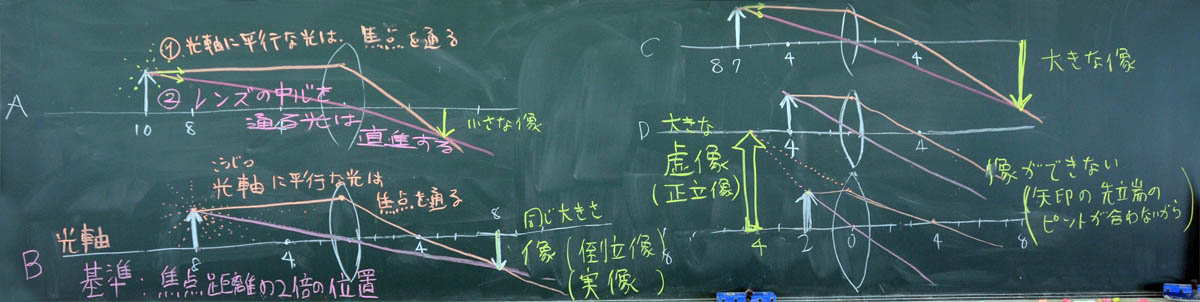 ① 光軸に平行な光は、焦点を通る
② レンズの中心を
通る光は
直進する
A
10 8
小さな像
こうじく
光軸に平行な光は
焦点を通る
光軸
B
8 4 4 8
同じ大きさ
像(倒立像)
(実像)
基準:焦点距離の2倍の位置
C
8 7 4 4
大きな像
D
4
像ができない
(矢印の先端の
ピントが合わないから)
大きな
虚像
(正立像)
8 4 2 0 4 8